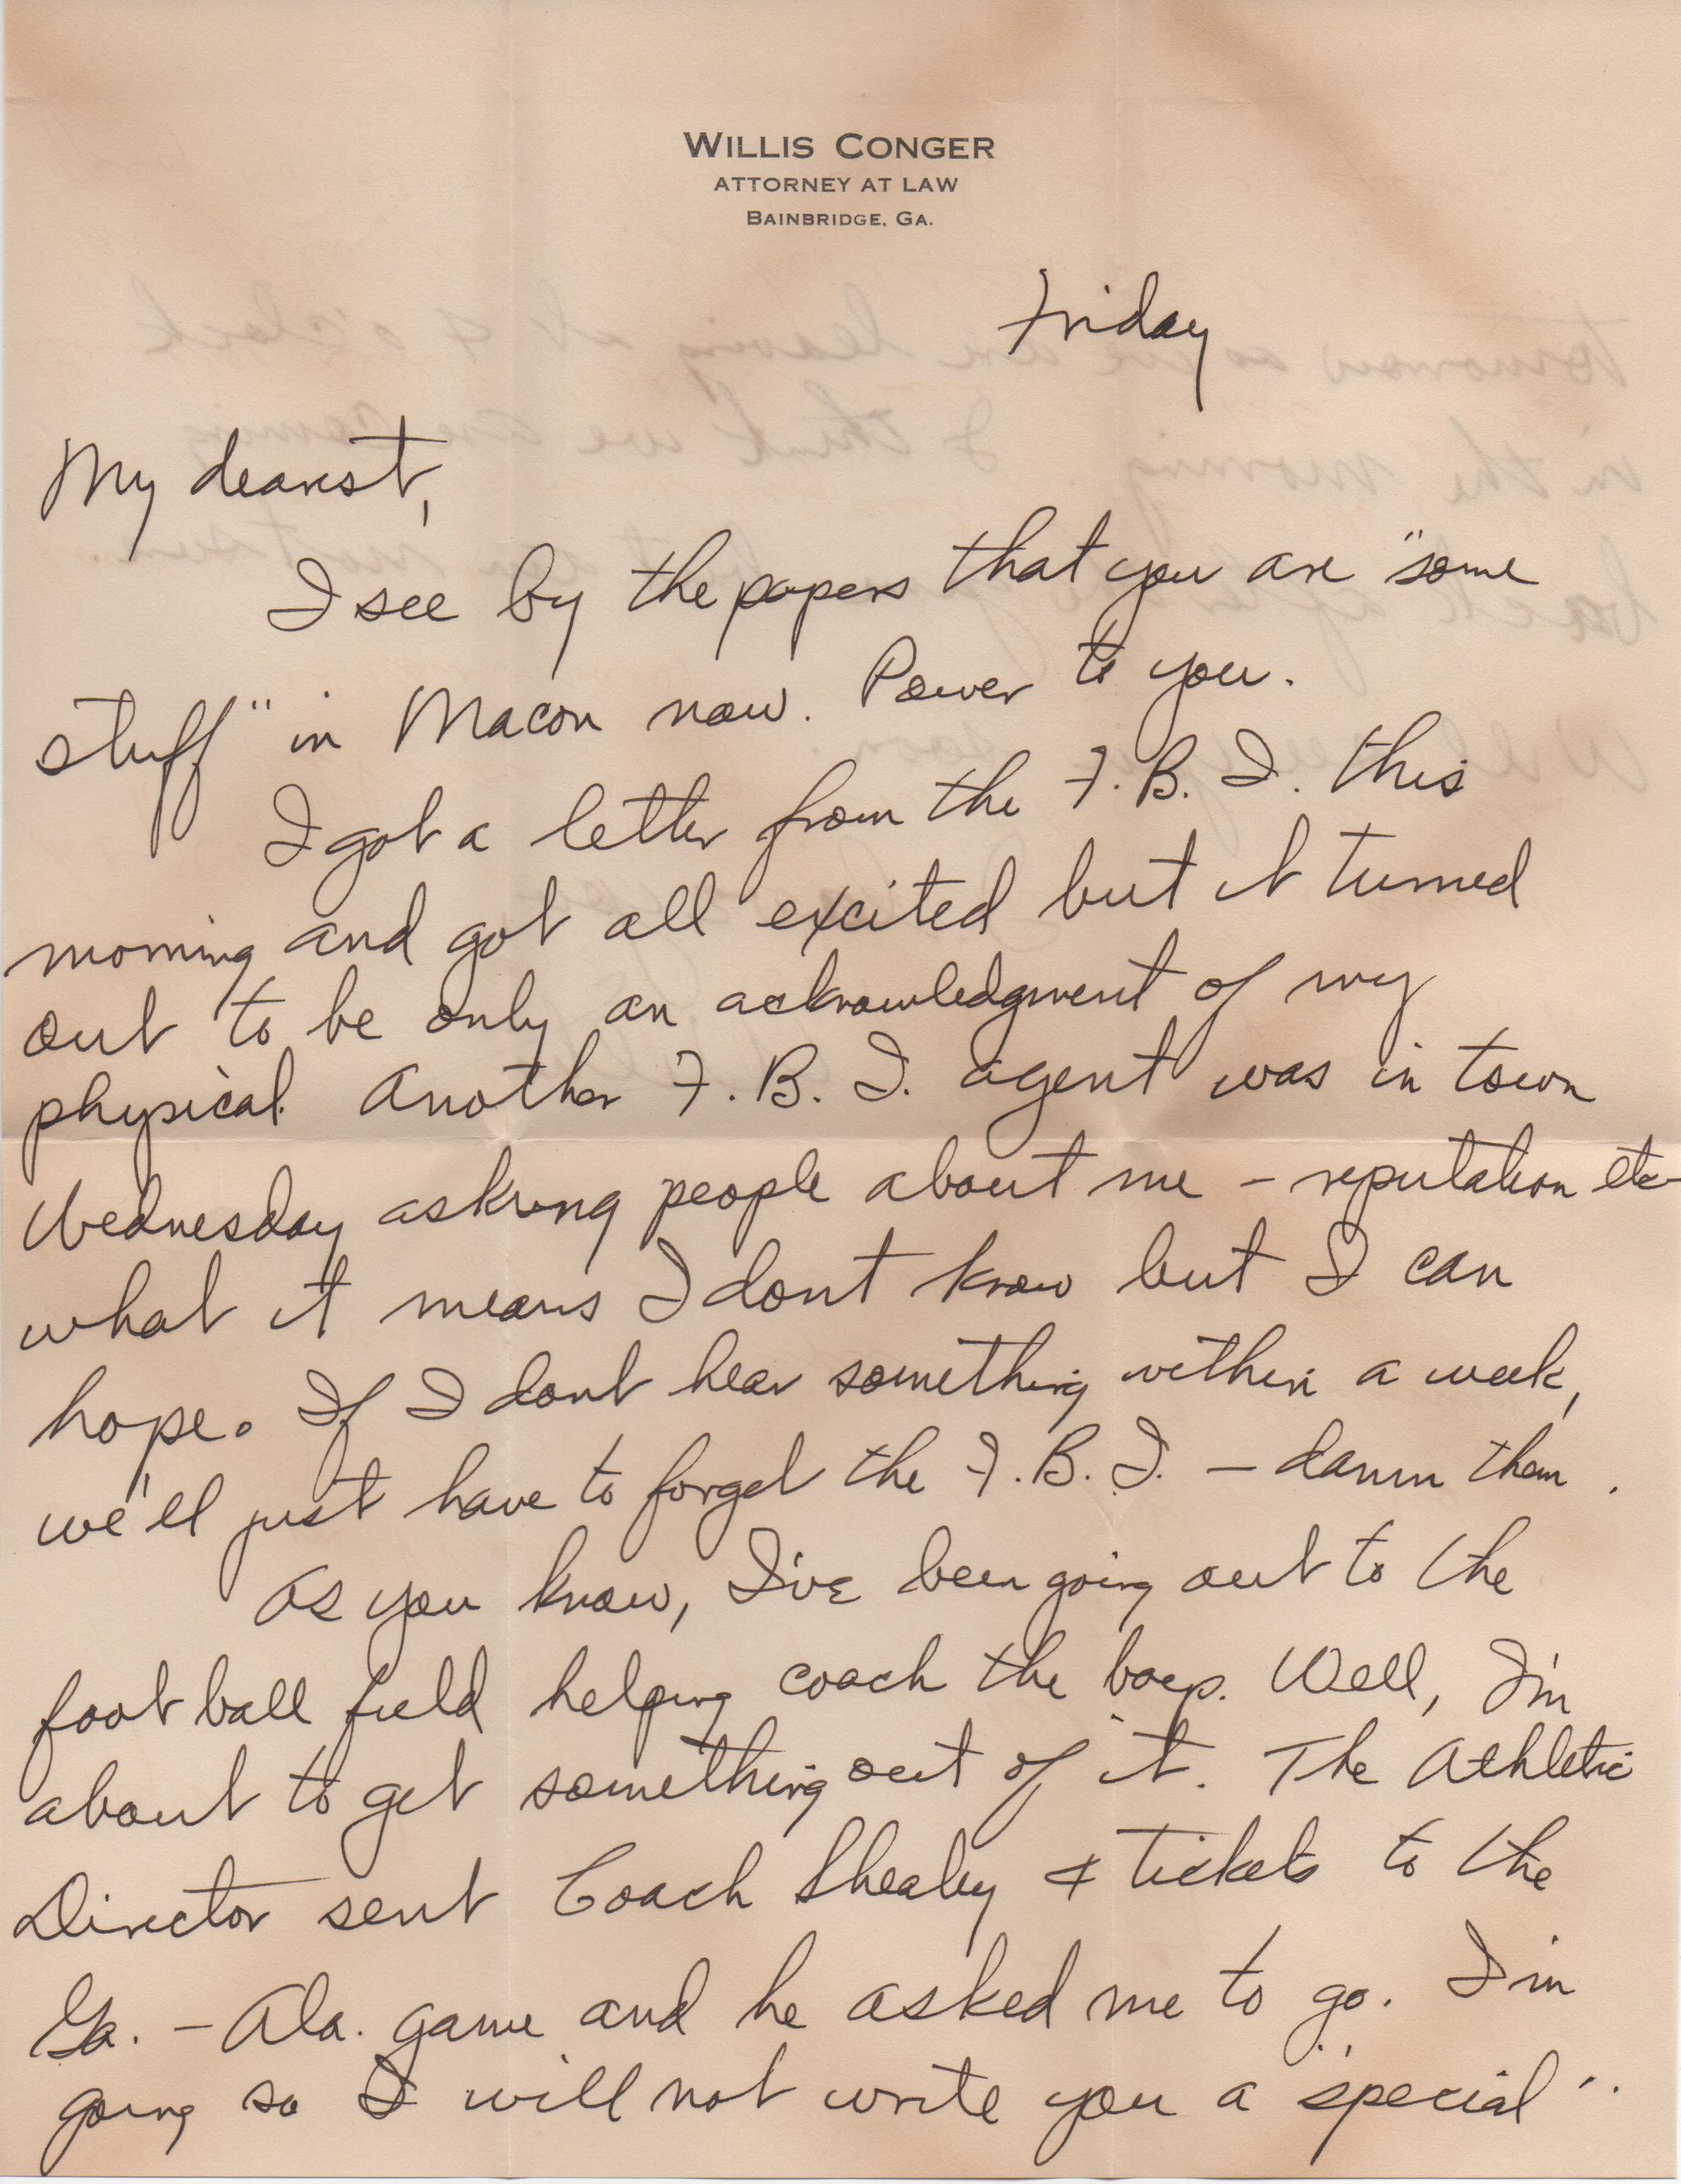 WILLIS CONGER
ATTORNEY AT LAW
BAINBRIDGE, GA.
Friday
My dearest,
I see by the papers that you are "some
stuff" in Macon now. Power to you.
I got a letter from the F.B.I. this
morning and got all excited but it turned
out to be only an acknowledgment of my
physical. Another F.B.I. agent was in town
Wednesday asking people about me – reputation etc
what it means I dont know but I can
hope. If I dont hear something within a week,
we'll just have to forget the F.B.I. – damn them.
As you know, I've been going out to the
foot ball field helping coach the boys. Well, I'm
about to get something out of it. The Athletic
Director sent Coach Shealey 4 tickets to the
Ga. – Ala. game and he asked me to go. I'm
going so I will not write you a "special".